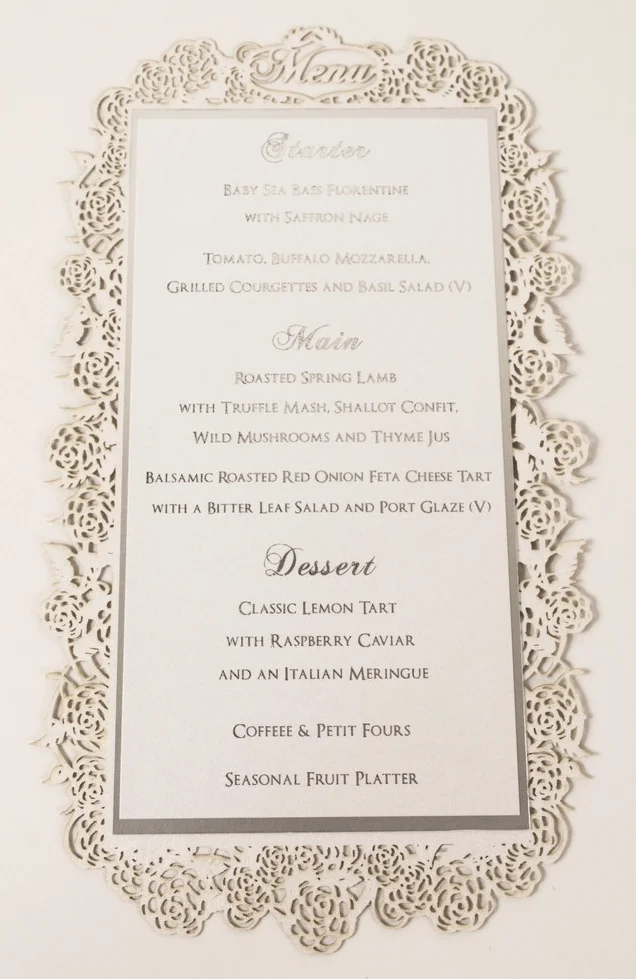 Menu
Starter
Baby Sea Bass Florentine
with Saffron Nage
Tomato, Buffalo Mozzarella,
Grilled Courgettes and Basil Salad (V)
Main
Roasted Spring Lamb
with Truffle Mash, Shallot Confit,
Wild Mushrooms and Thyme Jus
Balsamic Roasted Red Onion Feta Cheese Tart
with a Bitter Leaf Salad and Port Glaze (V)
Dessert
Classic Lemon Tart
with Raspberry Caviar
and an Italian Meringue
Coffeee & Petit Fours
Seasonal Fruit Platter